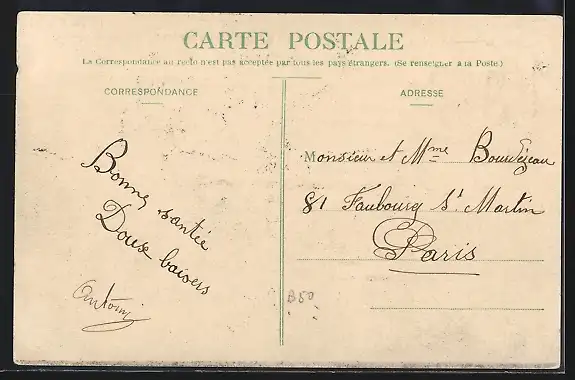 CARTE POSTALE
La Correspondance au recto n'est pas acceptée par tous les pays étrangers. (Se renseigner à la Poste.)
CORRESPONDANCE
Bonne santée
Doux baisers
Antoine
B50
ADRESSE
Monsieur et Mme Bourdejeau
81 Faubourg St Martin
Paris